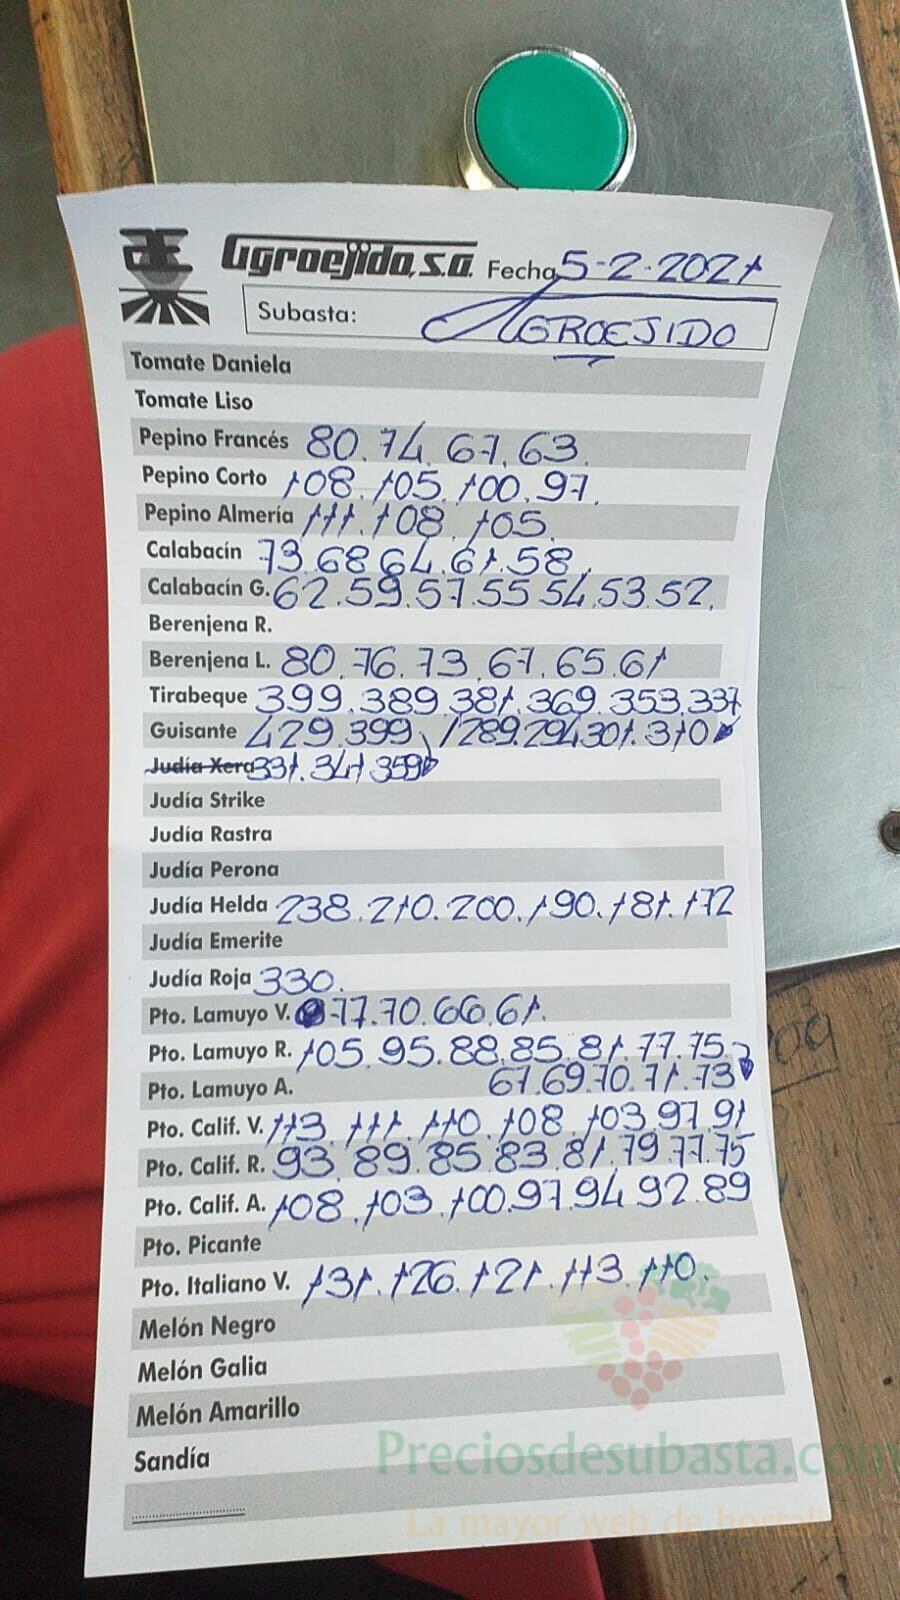 Agroejido, S.A. Fecha 5-2-2021
Subasta: AGROEJIDO
Tomate Daniela
Tomate Liso
Pepino Francés 80.74.67.63.
Pepino Corto 108.105.100.97.
Pepino Almería 111.108.105.
Calabacín 73.68.64.61.58.
Calabacín G. 62.59.57.55.54.53.52.
Berenjena R.
Berenjena L. 80.76.73.67.65.61
Tirabeque 399.389.381.369.353.337
Guisante 429.399 / 289.294.301.310
Judía Xera 331.341.359
Judía Strike
Judía Rastra
Judía Perona
Judía Helda 238.210.200.190.181.172
Judía Emerite
Judía Roja 330.
Pto. Lamuyo V. 77.70.66.61.
Pto. Lamuyo R. 105.95.88.85.81.77.75
Pto. Lamuyo A. 67.69.70.71.73
Pto. Calif. V. 113.111.110.108.103.97.91
Pto. Calif. R. 93.89.85.83.81.79.77.75
Pto. Calif. A. 108.103.100.97.94.92.89
Pto. Picante
Pto. Italiano V. 131.126.121.113.110.
Melón Negro
Melón Galia
Melón Amarillo
Sandía
Preciosdesubasta.com
La mayor web de hortalizas